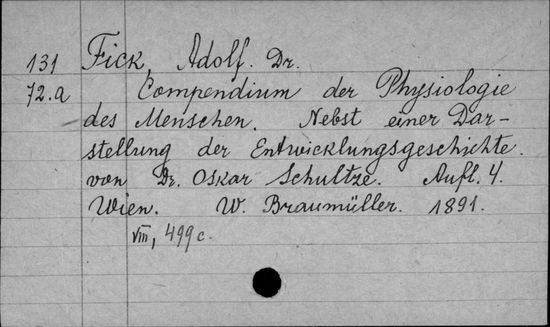 131 Fick, Adolf. Dr.
72.a Compendium der Physiologie
des Menschen. Nebst einer Dar-
stellung der Entwicklungsgeschichte.
von Dr. Oskar Schultze. Aufl. 4.
Wien. W. Braumüller. 1891.
VIII, 499 c.